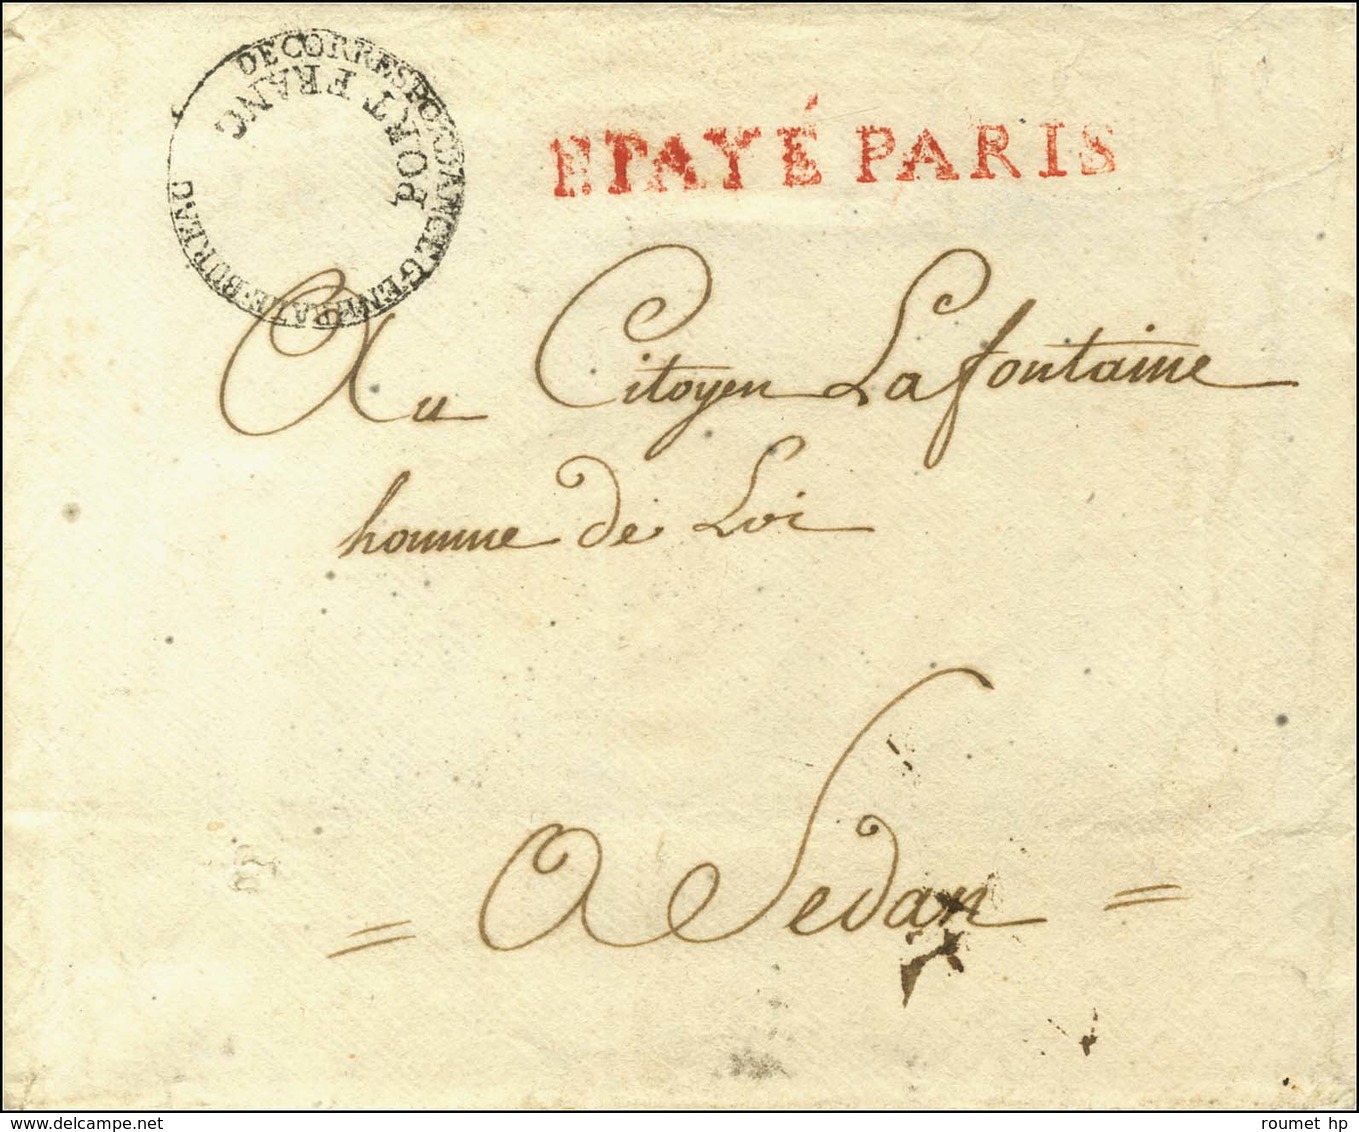 BUREAU DE CORRESPONDANCE GENERALE
PORT FRANC
P.PAYÉ PARIS
Au Citoyen Lafontaine
homme de Loi
= A Sedan =
www.delcampe.net
roumet hp